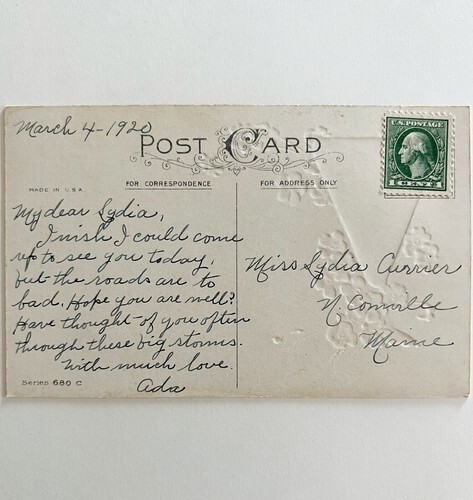 March 4-1920
POST CARD
U.S. POSTAGE
1 CENT 1
MADE IN U.S.A.
FOR CORRESPONDENCE
FOR ADDRESS ONLY
My dear Lydia,
I wish I could come
up to see you today,
but the roads are to
bad. Hope you are well?
Have thought of you often
through these big storms.
With much love.
Ada
Miss Lydia Currier
N. Cornville
Maine
Series 680 C